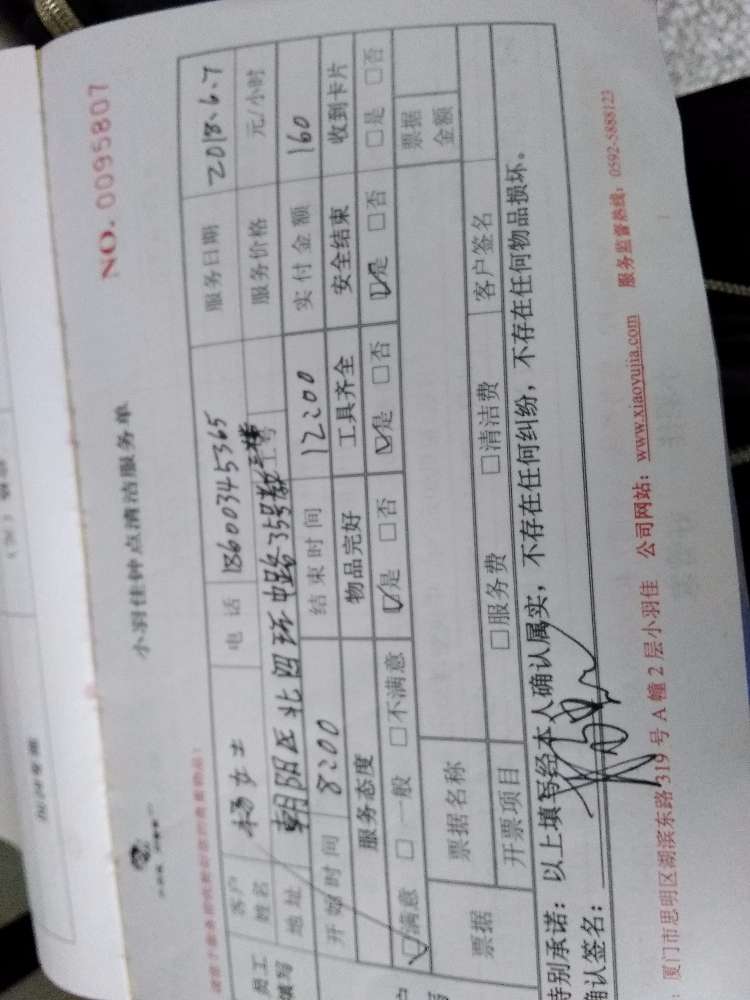 NO. 0095807
小羽佳钟点清洁服务单
员工填写 客户姓名 杨女士 电话 18600345365 服务日期 2018.6.7
地址 朝阳区北四环中路35号 工号 服务价格 元/小时
开始时间 8:00 结束时间 12:00 实付金额 160
服务态度 物品完好 工具齐全 安全结束 收到卡片
☑满意 □一般 □不满意 ☑是 □否 ☑是 □否 ☑是 □否 □是 □否
票据 票据名称 票据金额
开票项目 □服务费 □清洁费 客户签名
特别承诺：以上填写经本人确认属实，不存在任何纠纷，不存在任何物品损坏。
确认签名：
厦门市思明区湖滨东路319号A幢2层小羽佳 公司网站：www.xiaoyujia.com 服务监督热线：0592-5888123